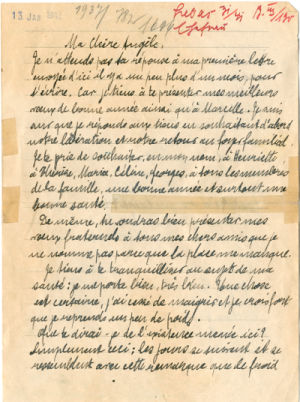 13 JAN 1942
1937/
Ma Claire Angèle.
Je n'attends pas ta réponse à ma première lettre
envoyée d'ici il y a un peu plus d'un mois, pour
t'écrire. Car je tiens à te présenter mes meilleurs
vœux de bonne année ainsi qu'à Marcelle. Je suis
sûr que je réponds aux tiens en souhaitant d'abord
notre libération et notre retour au foyer familial.
Je te prie de souhaiter, en mon nom, à Henriette
à Thérèse, Maria, Céline, Georges, à tous les membres
de la famille, une bonne année et surtout une
bonne santé.
De même, tu voudras bien présenter mes
vœux fraternels à tous mes chers amis que je
ne nomme pas parce que la place me manque.
Je tiens à te tranquilliser au sujet de ma
santé : je me porte bien, très bien. Une chose
est certaine, j'ai cessé de maigrir et je crois fort
que je reprends un peu de poids.
Que te dirai-je de l'existence menée ici?
Simplement ceci : les jours se suivent et se
ressemblent avec cette remarque que le froid